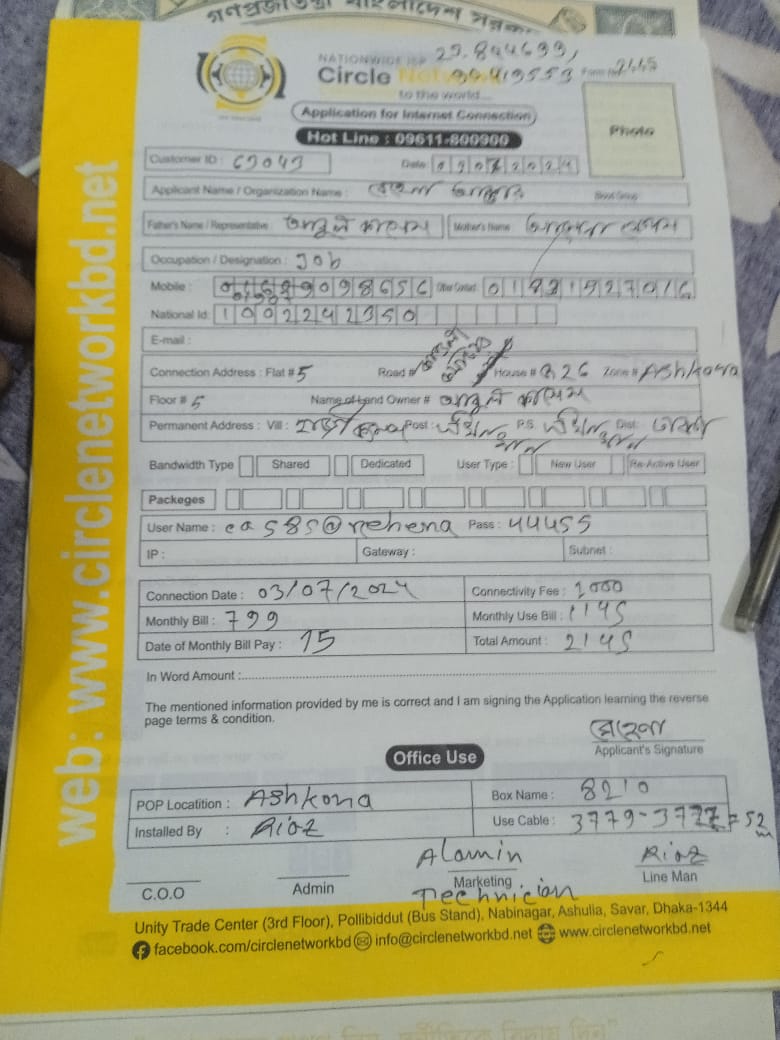 গণপ্রজাতন্ত্রী বাংলাদেশ সরকার
NATIONWIDE ISP 23.844699,
Circle Network 90.419553 Form No. 2445
to the world...
Application for Internet Connection
Hot Line : 09611-800900
Photo
Customer ID : 69043 Date
Applicant Name / Organization Name : Blood Group
Father's Name / Representative : আব্দুল কালাম Mother's Name বেগম
Occupation / Designation : Job
Mobile : Other Contact : 01921927016
National Id: 1002242350
E-mail :
Connection Address : Flat # 5 Road # House # 326 Zone # Ashkona
Floor # 5 Name of Land Owner # আব্দুল কালাম
Permanent Address : Vill : Post : P.S. Dist: ঢাকা
Bandwidth Type Shared Dedicated User Type : New User Re-Active User
Packeges
User Name : ea585@rehena Pass : 44455
IP : Gateway : Subnet :
Connection Date : 03/07/2024 Connectivity Fee : 1000
Monthly Bill : 799 Monthly Use Bill : 1145
Date of Monthly Bill Pay : 15 Total Amount : 2145
In Word Amount :
The mentioned information provided by me is correct and I am signing the Application learning the reverse
page terms & condition.
রেহেনা
Applicant's Signature
Office Use
POP Locatition : Ashkona Box Name : 8210
Installed By : Riaz Use Cable : 3779-3727 = 52 m
Alamin Riaz
C.O.O Admin Marketing Line Man
Technician
Unity Trade Center (3rd Floor), Pollibiddut (Bus Stand), Nabinagar, Ashulia, Savar, Dhaka-1344
facebook.com/circlenetworkbd info@circlenetworkbd.net www.circlenetworkbd.net
web: www.circlenetworkbd.net